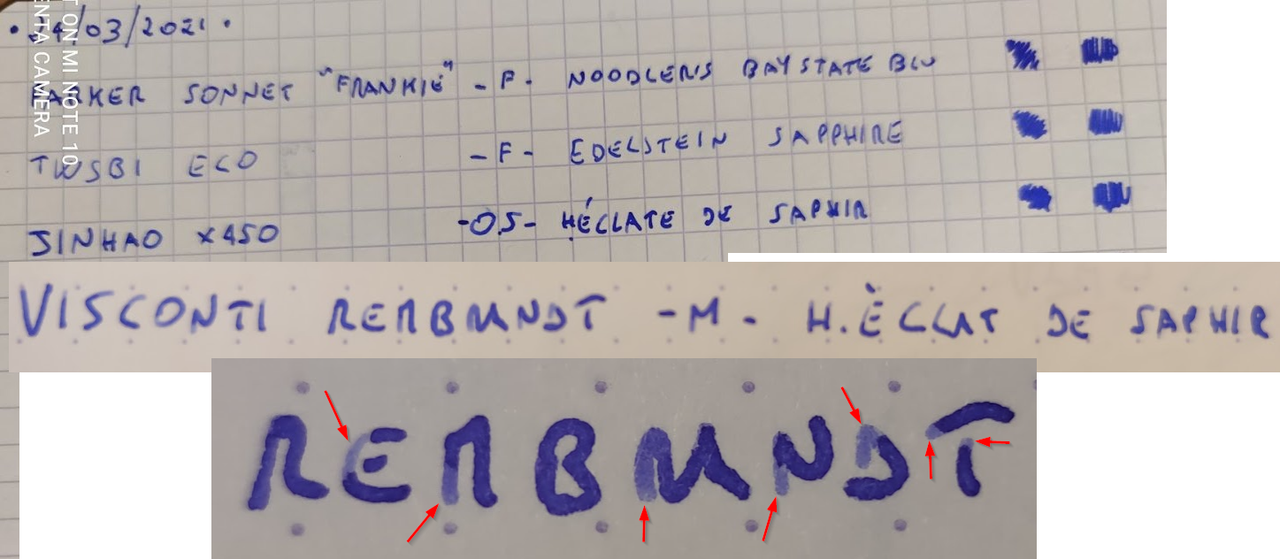 • 24/03/2021 •
PARKER SONNET "FRANKIE" - F - NOODLER'S BAYSTATE BLU
TWSBI ECO - F - EDELSTEIN SAPPHIRE
JINHAO X450 - 0.5 - HÉCLATE DE SAPHIR
VISCONTI REMBRNDT - M - H. ÈCLAT DE SAPHIR
REMBRNDT
ON MI NOTE 10
CAMERA